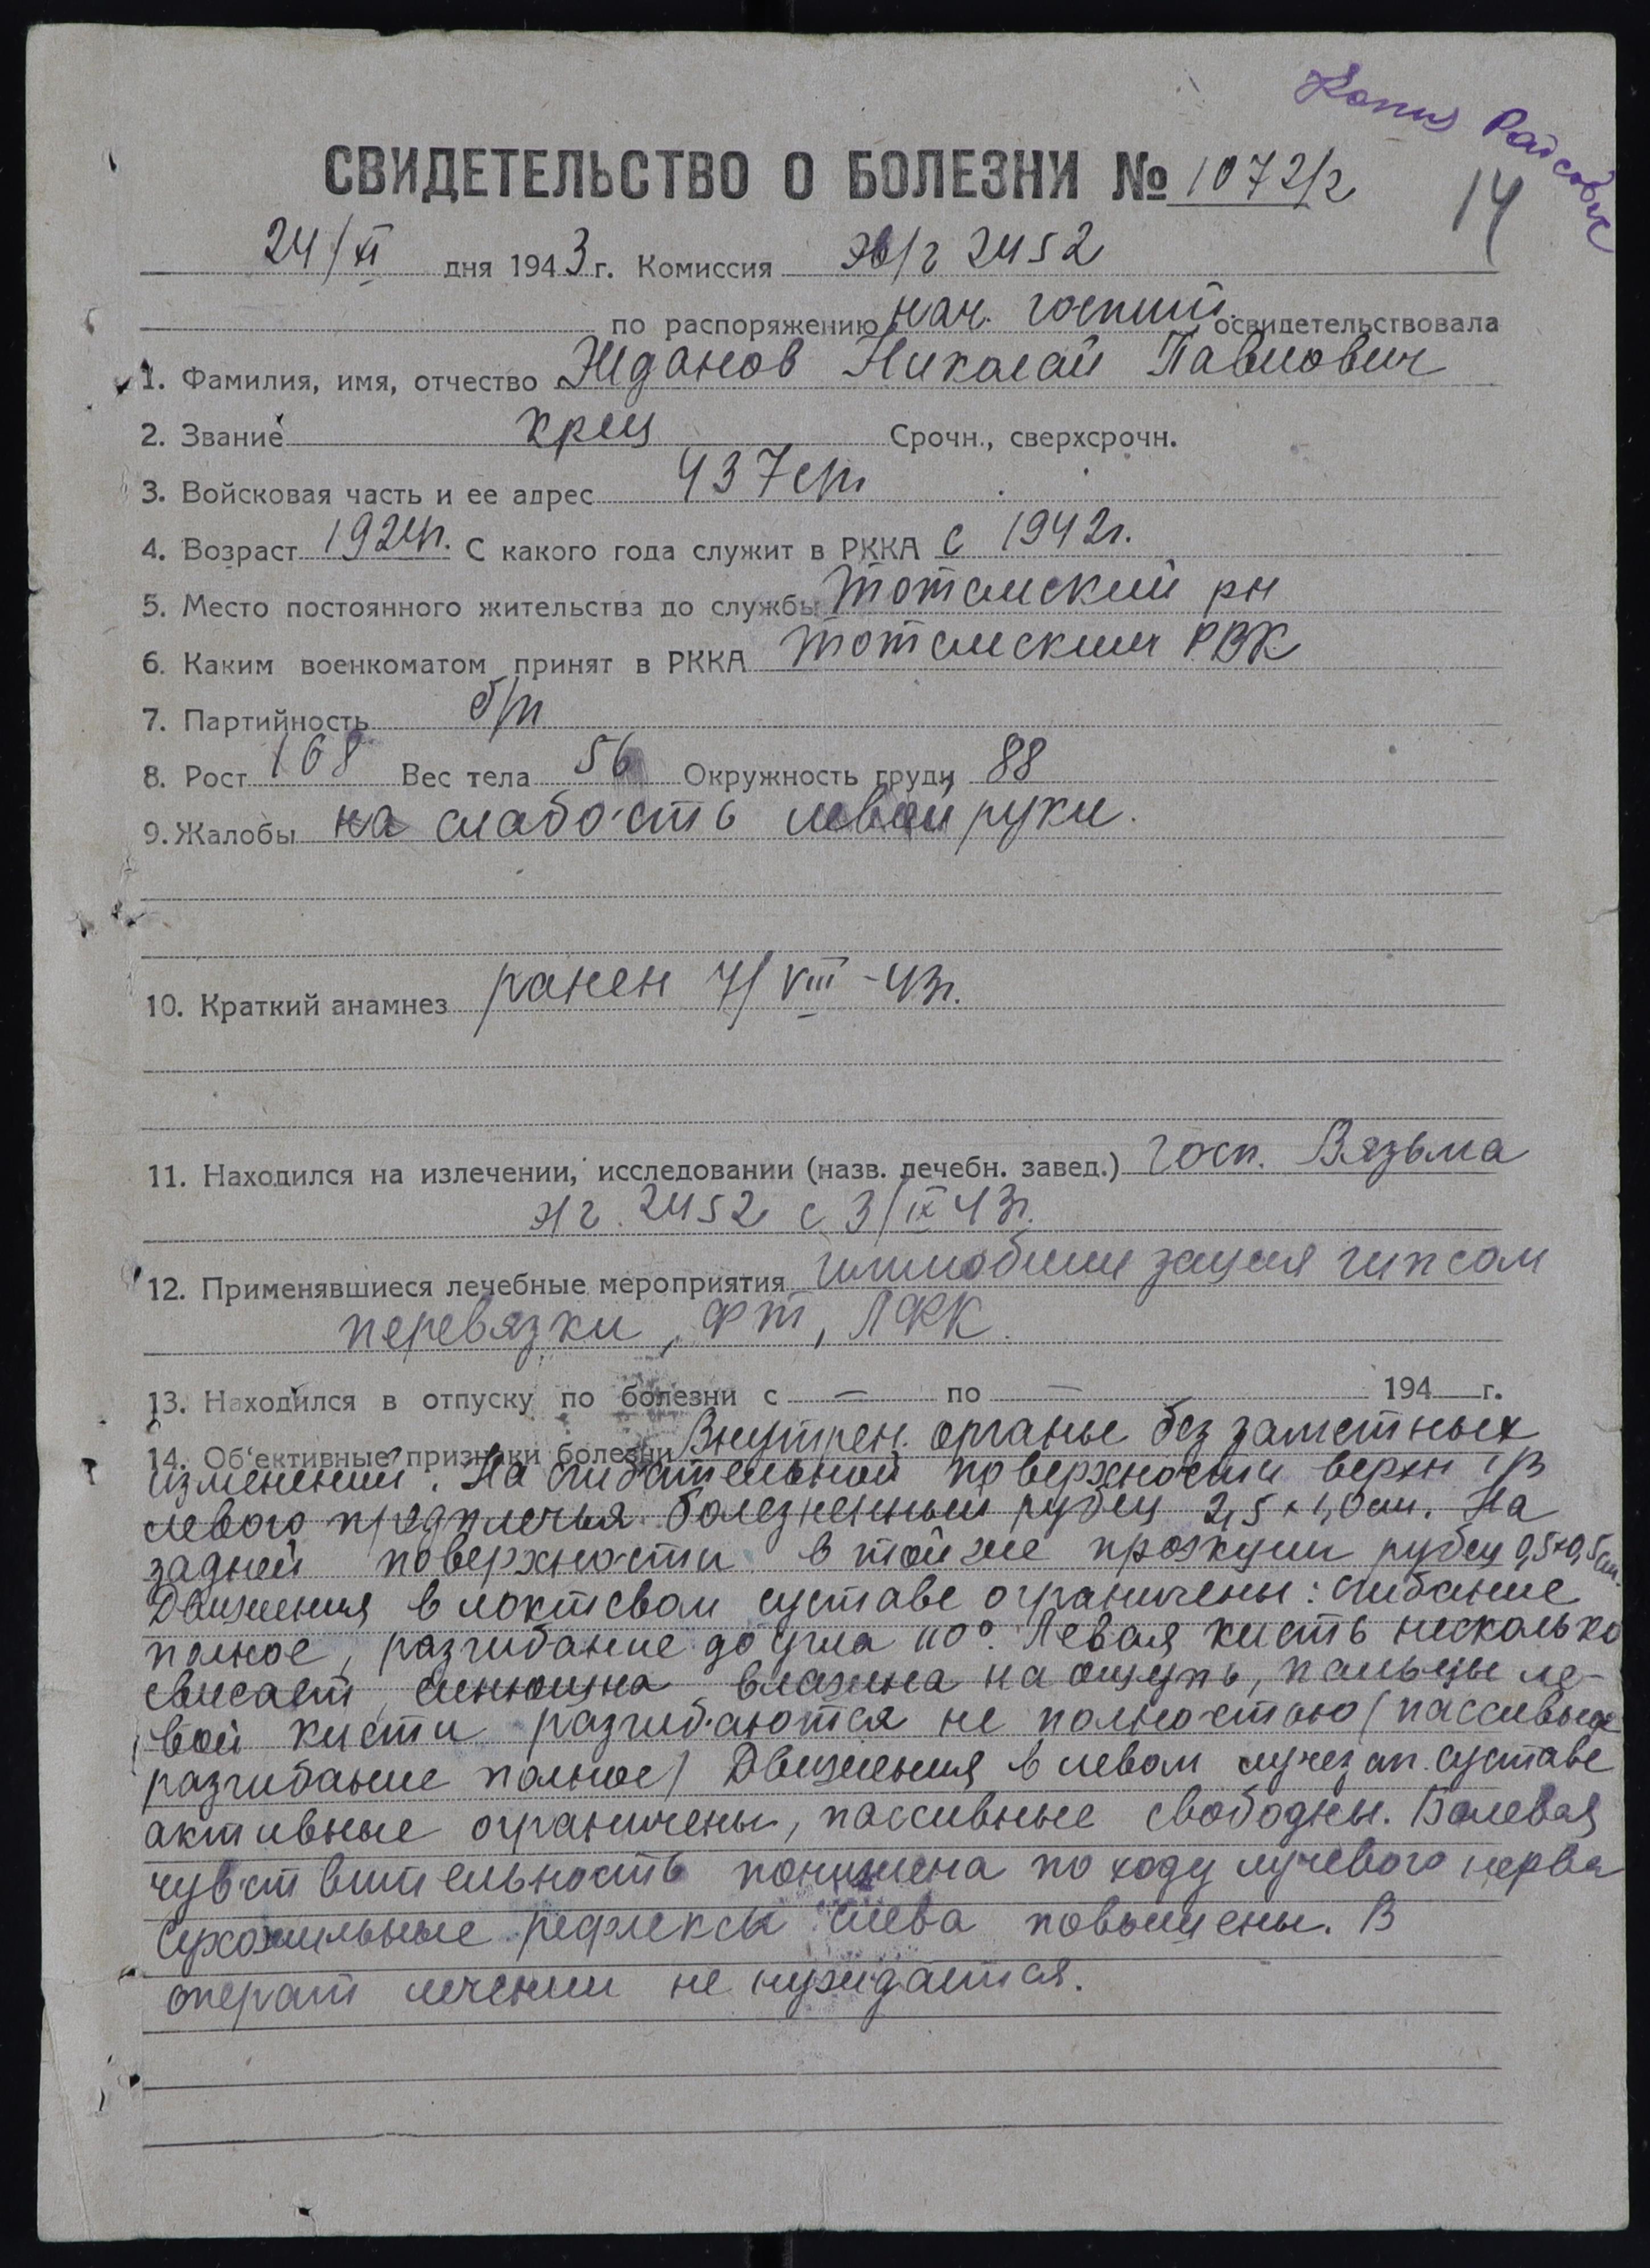 Копия
14
СВИДЕТЕЛЬСТВО О БОЛЕЗНИ № 1072/2
24/XI дня 1943 г. Комиссия эв/г 2452
по распоряжению нач. госпит. освидетельствовала
1. Фамилия, имя, отчество Жданов Николай Павлович
2. Звание кр-ец Срочн., сверхсрочн.
3. Войсковая часть и ее адрес 437 сп
4. Возраст 1924г. С какого года служит в РККА с 1942г.
5. Место постоянного жительства до службы Тотемский рн
6. Каким военкоматом принят в РККА Тотемским РВК
7. Партийность б/п
8. Рост 168 Вес тела 56 Окружность груди 88
9. Жалобы на слабость левой руки.
10. Краткий анамнез ранен 7/VIII-43г.
11. Находился на излечении, исследовании (назв. лечебн. завед.) Госп. Вязьма
эг. 2452 с 3/IX 43г.
12. Применявшиеся лечебные мероприятия иммобилизация гипсом
перевязки, ФТ, ЛФК.
13. Находился в отпуску по болезни с — по — 194 г.
14. Об'ективные признаки болезни Внутрен. органы без заметных
изменений. На сгибательной поверхности верхн 1/3
левого предплечья болезненный рубец 2,5×1,0см. На
задней поверхности в той же проекции рубец 0,5×0,5см.
Движения в локтевом суставе ограничены: сгибание
полное, разгибание до угла 110°. Левая кисть несколько
свисает, синюшна влажна на ощупь, пальцы ле-
вой кисти разгибаются не полностью (пассивное
разгибание полное) Движения в левом лучезап. суставе
активные ограничены, пассивные свободны. Болевая
чувствительность понижена по ходу лучевого нерва
Сухожильные рефлексы слева повышены. В
операт лечении не нуждается.